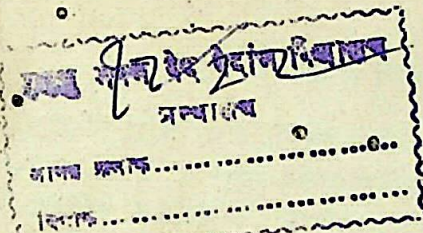 भवन वेद वेदांग विद्यालय
ग्रन्थालय
आगत क्रमांक..........................
दिनांक..............................